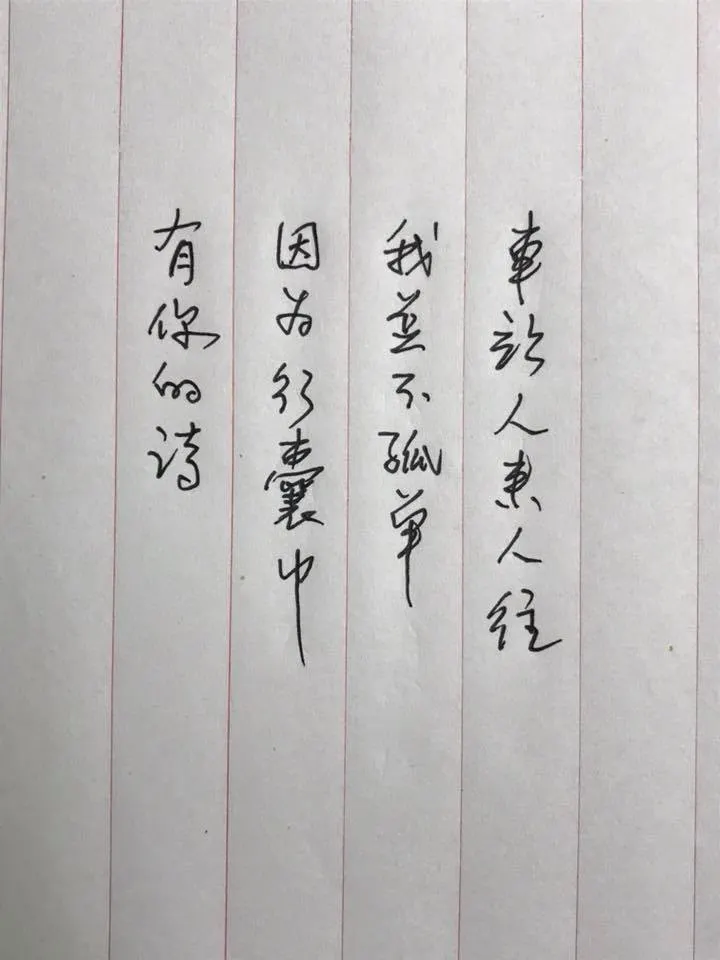 車站人來人往
我並不孤單
因为行囊中
有你的詩